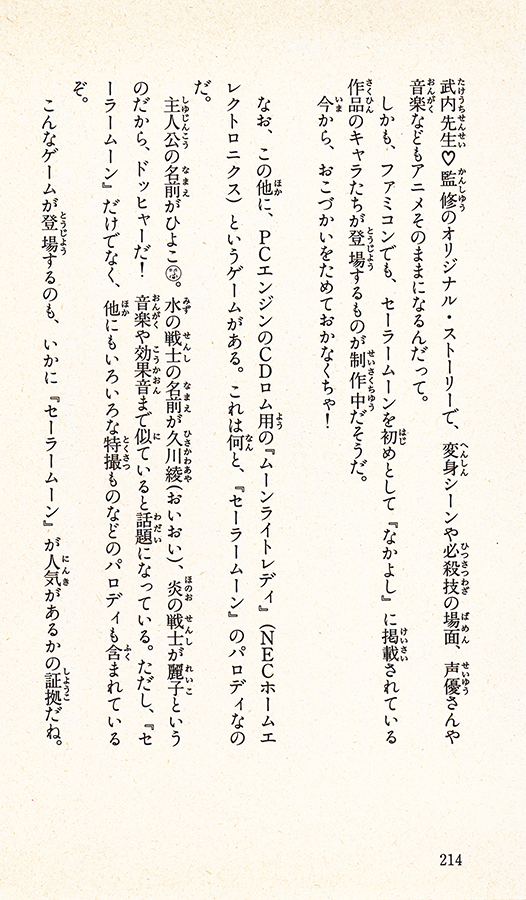 武内先生♡監修のオリジナル・ストーリーで、変身シーンや必殺技の場面、声優さんや
音楽などもアニメそのままになるんだって。
しかも、ファミコンでも、セーラームーンを初めとして『なかよし』に掲載されている
作品のキャラたちが登場するものが制作中だそうだ。
今から、おこづかいをためておかなくちゃ！
なお、この他に、PCエンジンのCDロム用の『ムーンライトレディ』（NECホームエ
レクトロニクス）というゲームがある。これは何と、『セーラームーン』のパロディなの
だ。
主人公の名前がひよこ。水の戦士の名前が久川綾（おいおい）、炎の戦士が麗子という
のだから、ドッヒャーだ！　音楽や効果音まで似ていると話題になっている。ただし、『セ
ーラームーン』だけでなく、他にもいろいろな特撮ものなどのパロディも含まれている
ぞ。
こんなゲームが登場するのも、いかに『セーラームーン』が人気があるかの証拠だね。
214